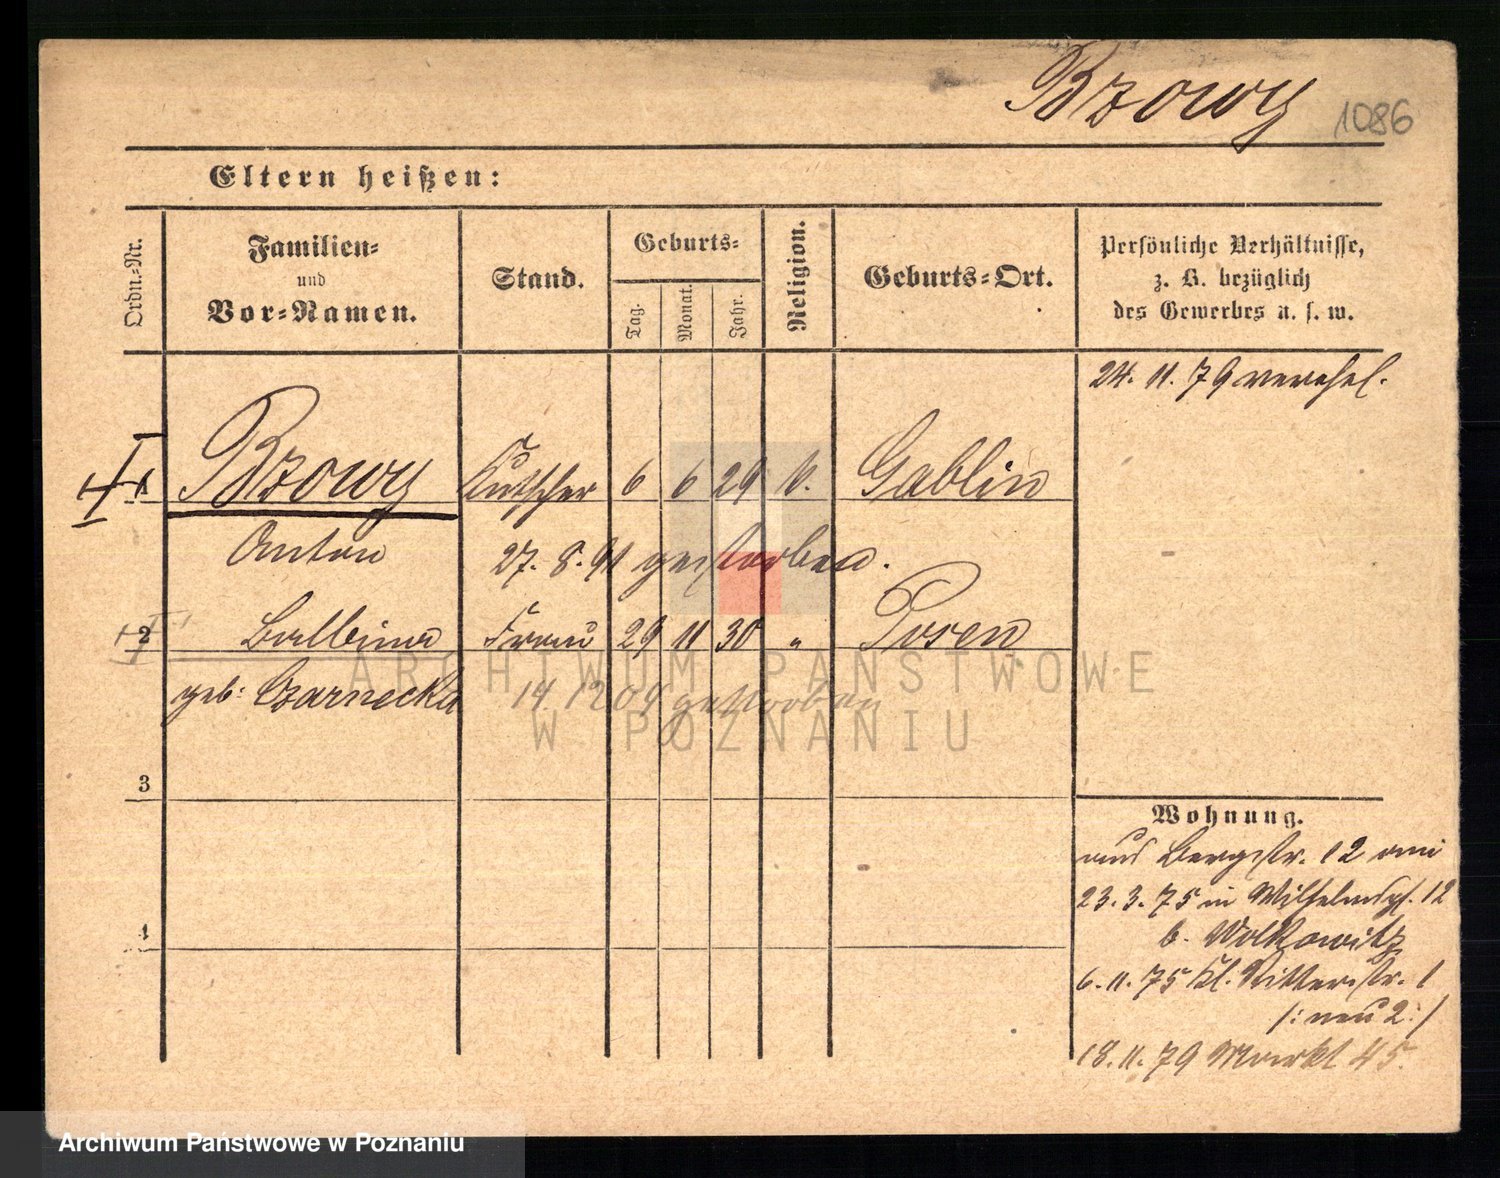 Bzowy 1086
Eltern heißen:
Ordn.-Nr.
Familien-
und
Vor-Namen.
Stand.
Geburts-
Tag.
Monat.
Jahr.
Religion.
Geburts-Ort.
Persönliche Verhältnisse,
z. B. bezüglich
des Gewerbes u. s. w.
24. 11. 79 verehel.
1 Bzowy Kutscher 6 6 29 k. Gablin
Anton 27. 8. 91 gestorben.
2 Balbina Frau 29 11 30 " Posen
geb: Czarnecka 14. 12 04 gestorben
ARCHIWUM PAŃSTWOWE
W POZNANIU
3
4
Wohnung.
aus Bergstr. 12 am
23. 3. 75 in Wilhelmspl. 12
b. Wolkowitz
6. 11. 75 Kl. Ritterstr. 1
/: neu 2 :/
18. 11. 79 Markt 45.
Archiwum Państwowe w Poznaniu